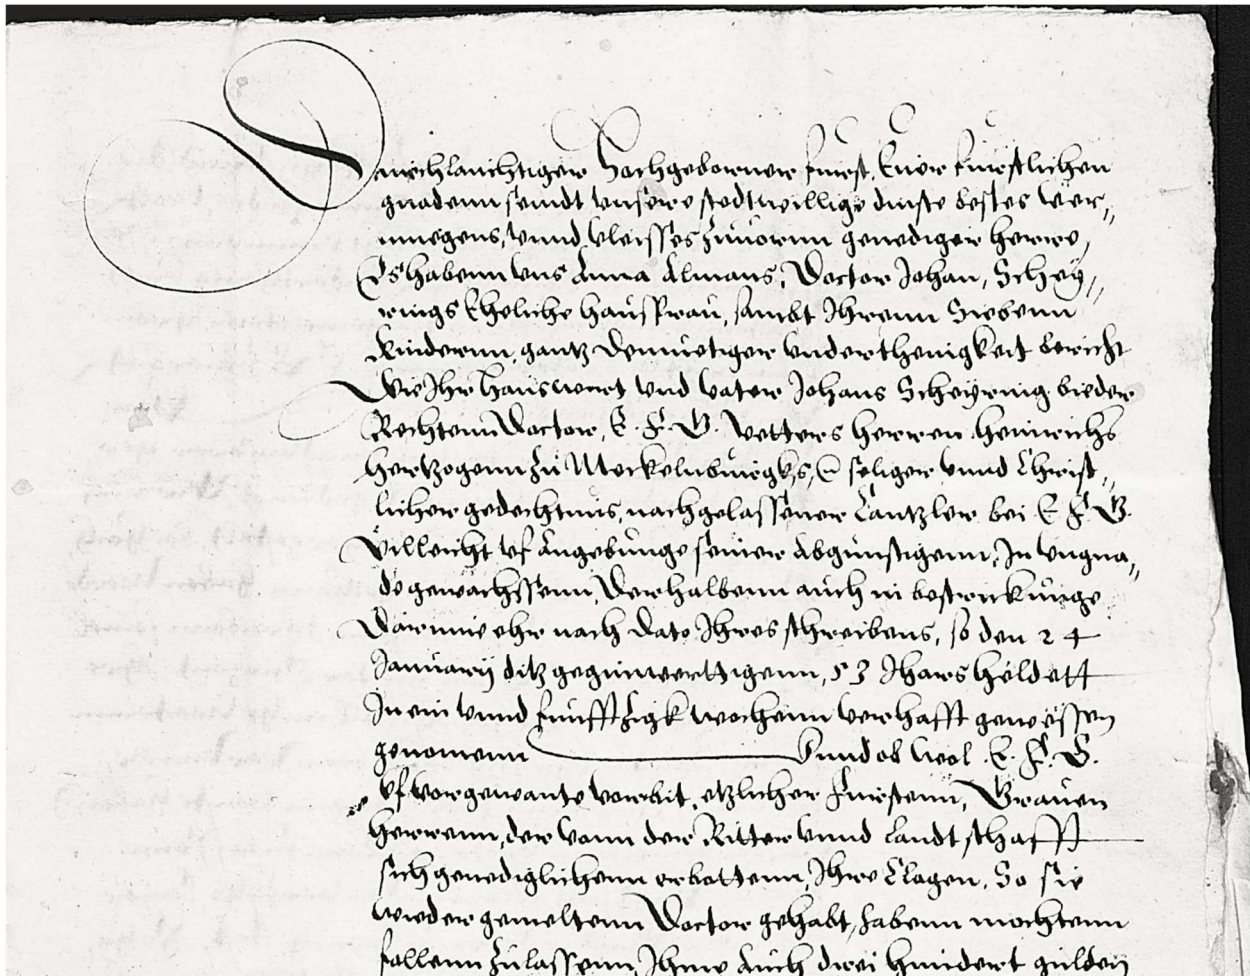 Durichlauchtiger Hochgeborner furst, Euer furstlichen
gnadenn seindt unsere stedtwillige dinste bestes ver„
muegens, unnd vleisses zuvornn genediger herre,
Es habenn uns Anna Almans, Doctor Johan, Schey„
rings Eheliche hausfrau, sambt Ihrenn Siebenn
Kindernn, gantz demuetiger underthenigkeit bericht
Wie Ihr hauswert und vater Johans Scheyring bieder
Rechtenn Doctor, E. F. G. vetters herren heinrichs
hertzogenn zu Meckelnburgks, seliger unnd Christ„
licher gedechtnus, nachgelassener Cantzler bei E F G.
villeicht uf Angebunge seiner Abgunstigenn, In ungna„
de gewachssenn, Derhalbenn auch in bestrickunge
Darinne ehr nach dato Ihres schreibens, so den 24
January ditz gegenwerttigenn, 53 Ihars heldett
In ein unnd funfftzigk wochenn verhafft gewessen
genomenn unnd ob wol E. F. G.
uf vorgewante vorbit, etzlicher Furstenn, Graven
Herrenn, der vann der Ritter unnd Landtschafft
sich genediglichenn erbottenn, Ihre Clagen, So sie
wieder gemeltenn Doctor gehabt, habenn mochtenn
fallenn zulassenn, Ihme Auch drei hundert gulden